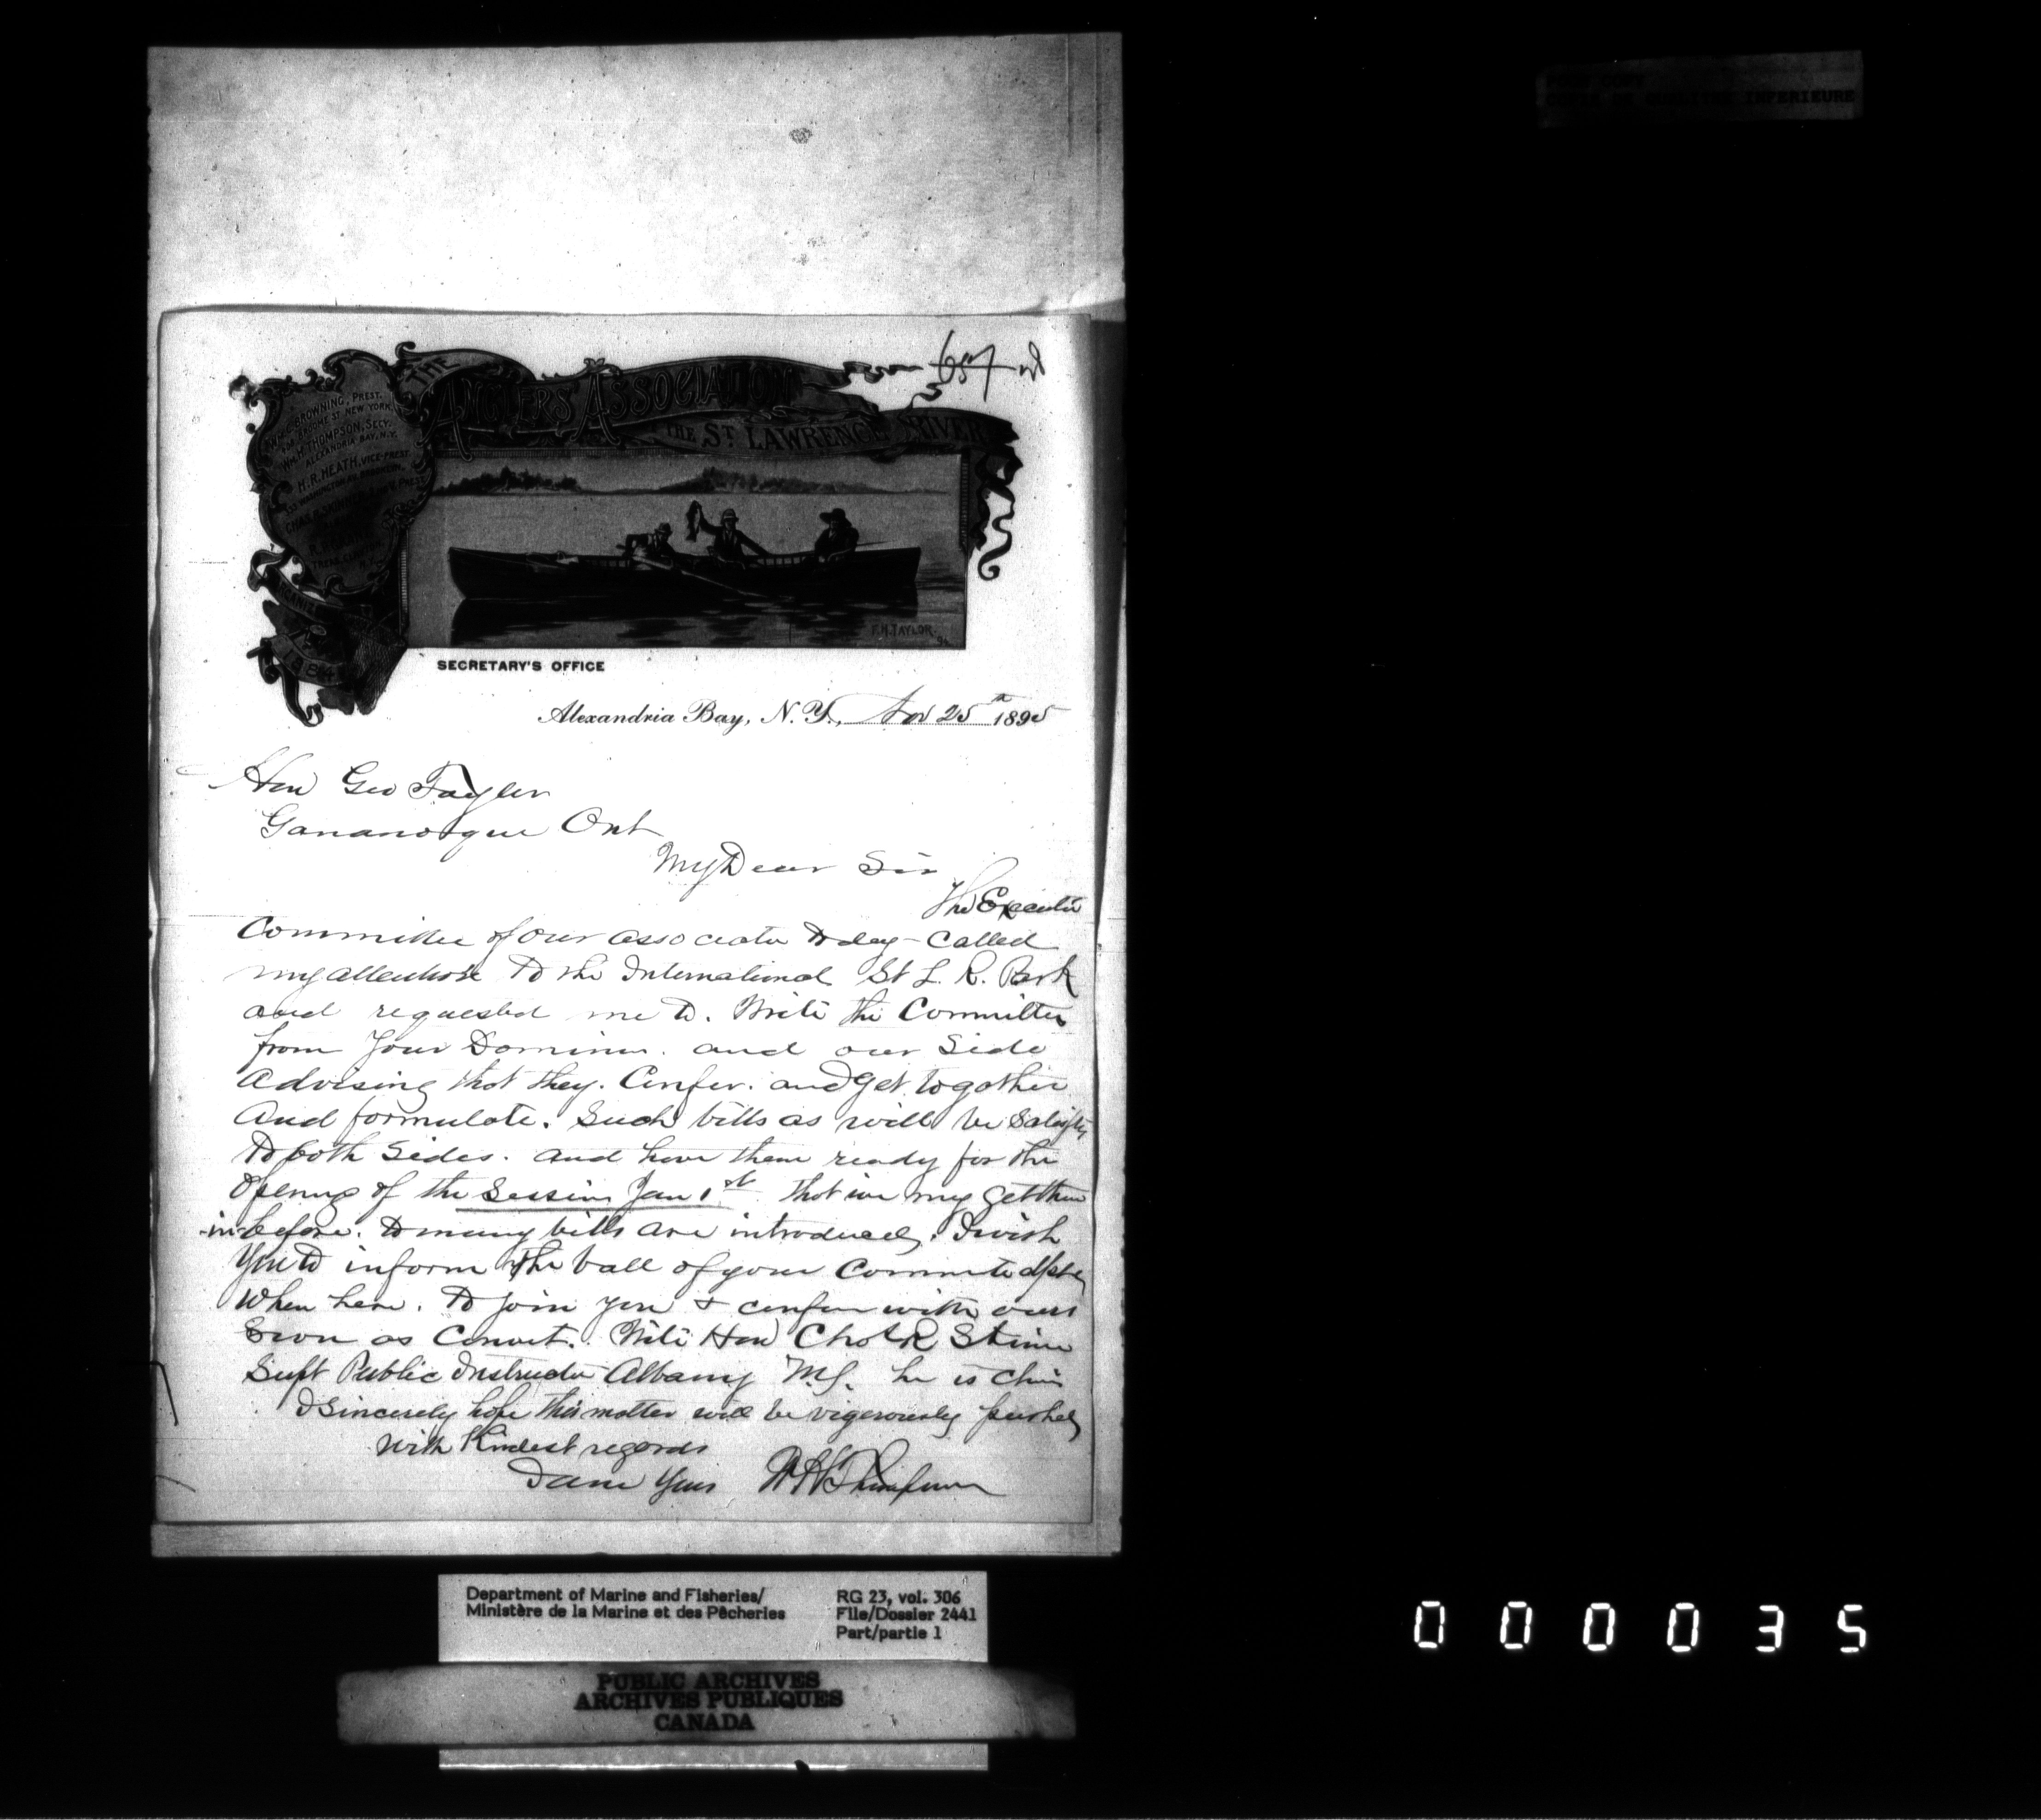 INFERIEURE
657
THE
ANGLERS ASSOCIATION
OF THE ST LAWRENCE RIVER
BROWNING, PREST.
BROOME ST. NEW YORK.
WM. H. THOMPSON, SECY.
ALEXANDRIA BAY, N.Y.
H. R. HEATH, VICE-PREST.
F. H. TAYLOR
SECRETARY'S OFFICE
Alexandria Bay, N. Y., Nov 25th 1895
Hon Geo Tayler
Gananoque Ont
My Dear Sir
The Executive
Committee of our associatn today - called
my attention to the International St L. R. Park
and requested me to. Write the Committee
from Your Dominion. and our Side
Advising that they. Confer. and get together
And formulate. Such bills as will be
to both Sides. and have them ready for the
opening of the Session Jan 1st that we may get them
in before. to many bills are introduced. I wish
You to inform the ball of your Committe
When here. to join you & confer with ours
Soon as Convet. Write Hon Chas R Skinner
Supt Public Instructn Albany N.Y. he is Chair
I Sincerely hope this matter will be vigerously pushed
With Kindest regards
I am Yours W H Thompson
Department of Marine and Fisheries/
Ministère de la Marine et des Pêcheries
RG 23, vol. 306
File/Dossier 2441
Part/partie 1
PUBLIC ARCHIVES
ARCHIVES PUBLIQUES
CANADA
000035